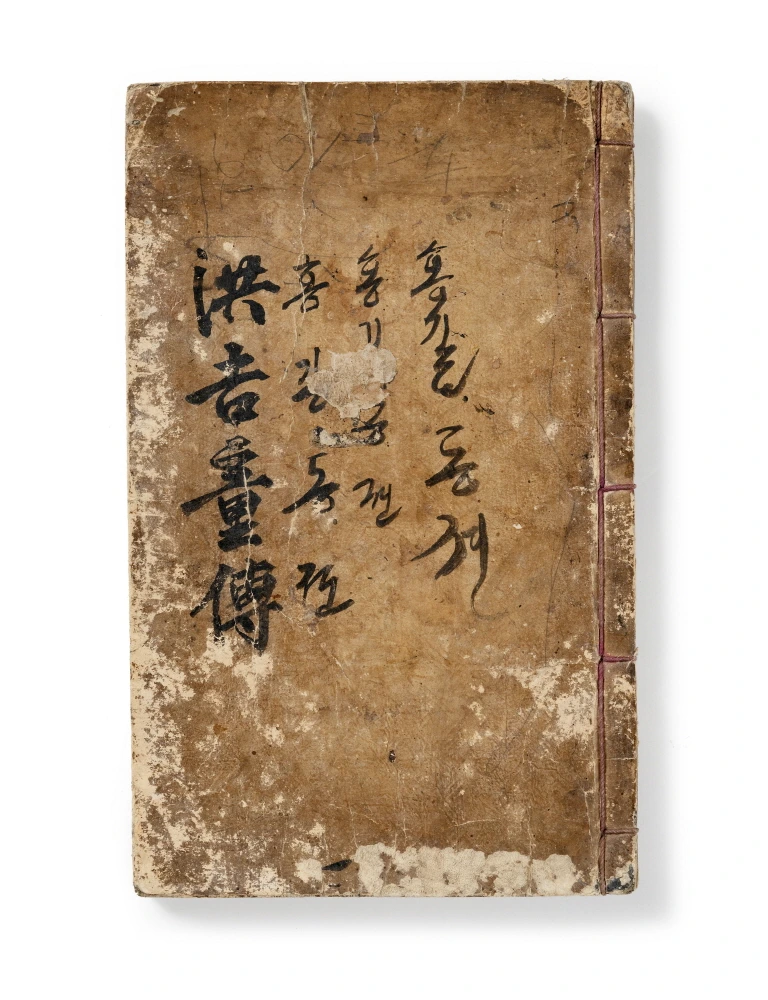 홍길동젼
홍 동젼
홍길동젼
洪吉童傳